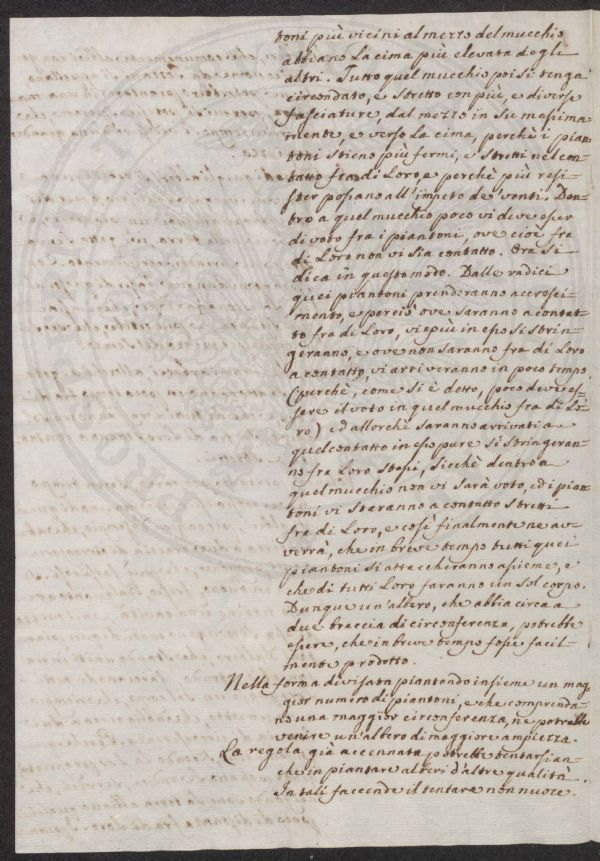 toni più vicini al mezzo del mucchio
abbiano la cima più elevata degli
altri. Tutto quel mucchio poi si tenga
circondato, e stretto con più, e diverse
fasciature, dal mezzo in su massima-
mente, e verso la cima, perchè i pian-
toni stieno più fermi, e stretti nel con-
tatto fra di Loro, e perchè più resi-
ster possano all'impeto de' venti. Den-
tro a quel mucchio poco vi deve esser
di voto fra i piantoni, ove cioè fra
di Loro non vi sia contatto. Ora si
dica in questo modo. Dalle radici
quei piantoni prenderanno accresci-
mento, e perciò ove saranno a contat-
to fra di Loro, vie più in esso si strin-
geranno, e ove non saranno fra di Loro
a contatto, vi arriveranno in poco tempo
(perchè, come si è detto, poco deve es-
sere il voto in quel mucchio fra di Lo-
ro) ed allorchè saranno arrivati a
quel contatto in esso pure si stringeran-
no fra Loro stessi, sicchè dentro a
quel mucchio non vi sarà voto, ed i pian-
toni vi staranno a contatto stretti
fra di Loro, e così finalmente ne av-
verrà, che in breve tempo tutti quei
piantoni si attaccheranno assieme, e
che di tutti Loro faranno un sol corpo.
Dunque un'albero, che abbia circa a
due braccia di circonferenza, potrebbe
essere, che in breve tempo fosse facil-
mente prodotto.
Nella forma divisata piantando insieme un mag-
gior numero di piantoni, e che comprenda-
no una maggior circonferenza, ne potrebbe
venire un'albero di maggiore ampiezza.
La regola già accennata potrebbe tentarsi an-
che in piantare alberi d'altre qualità.
In tali faccende il tentare non nuoce.